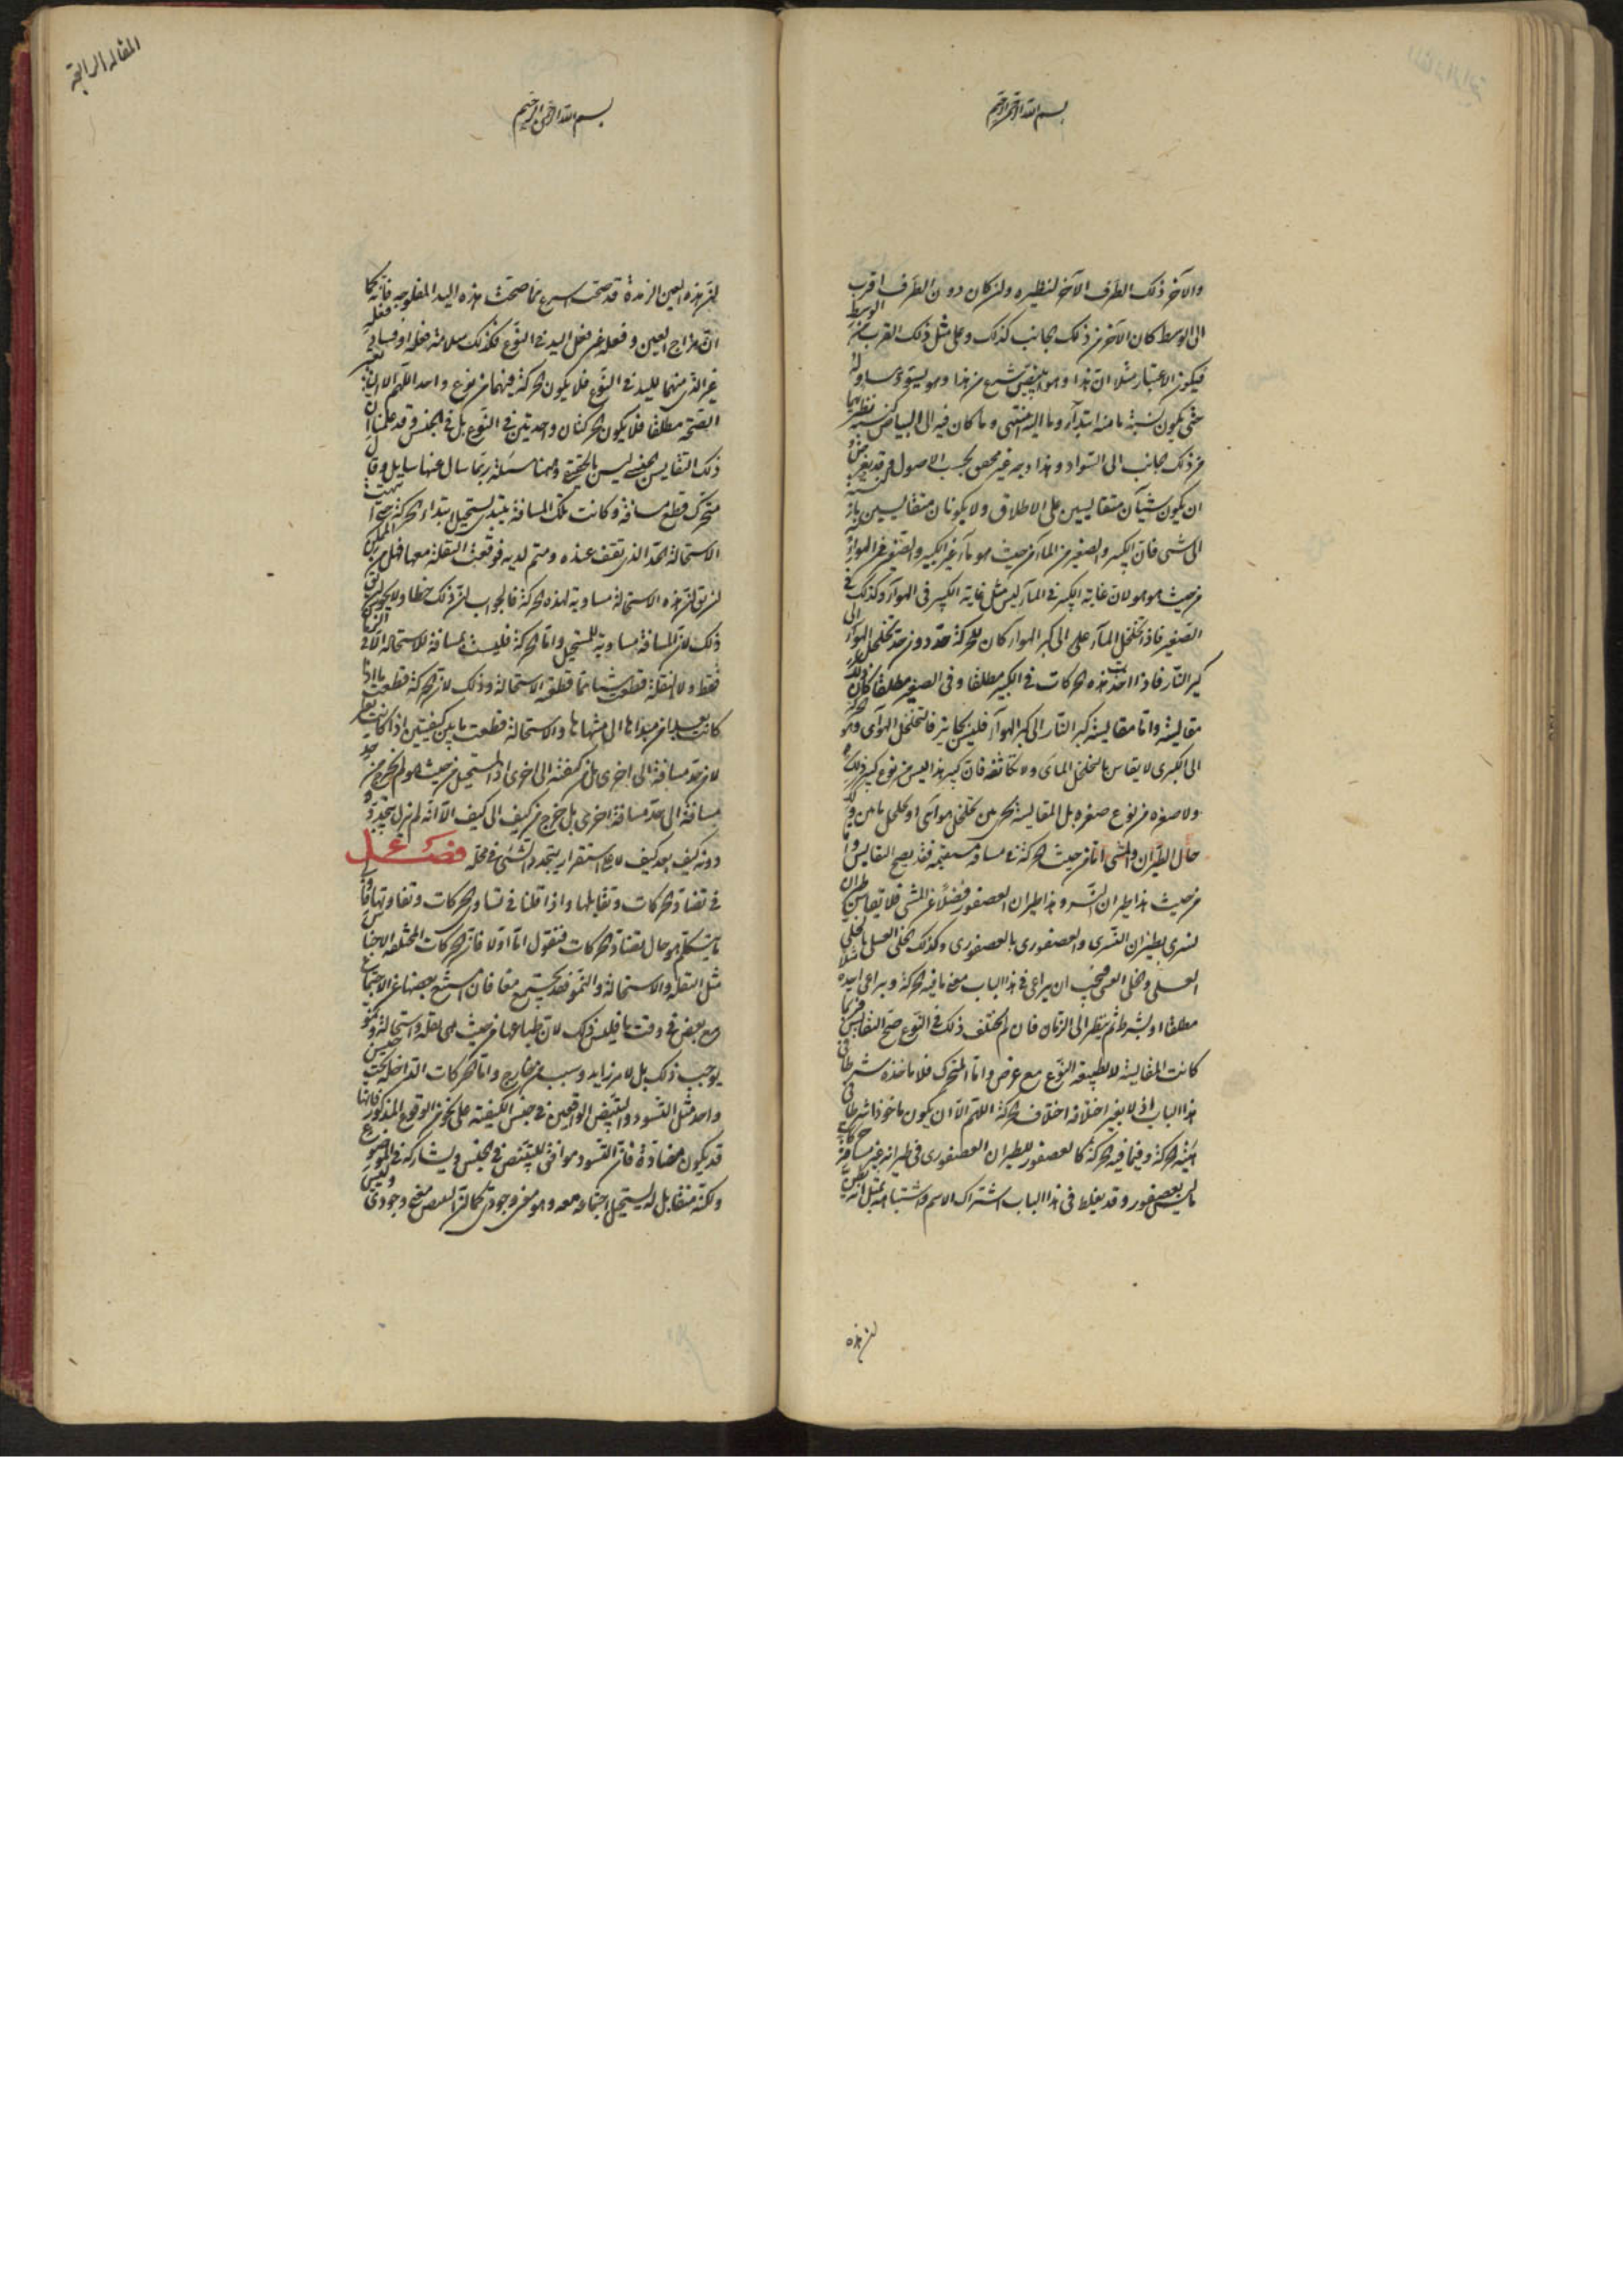 بسم الله الرحمن الرحيم
والآخر ذلك الطرف الآخر لنظيره ولن كان دون الطرف اقرب
الى الوسط كان الآخر من ذلك الجانب كذلك وعلى مثل ذلك القرب من الوسط
فيكون الاعتبار مثلا ان هذا وهو يبيض اسرع من هذا وهو يسود مساو له
حتى يكون نسبة ما منه ابتدأ وما اليه انتهى وما كان فيه الى البياض كنسبة نظيريهما
من ذلك الجانب الى السواد وهذا وجه غير محقق بحسب الاصول وقد يعرض
ان يكون شيئان متقايسين على الاطلاق ولا يكونان متقايسين بازا نسبة
الى شى فان الكبير والصغير من المآء من حيث هو مآء غير الكبير والصغير من الهوآء
من حيث هو هو لان غاية الكبير في المآء ليس مثل غاية الكبير في الهوآء وكذلك في
الصغير فاذا تخلخل المآء على الى كبر الهوآء كان للحركة حد دون حد تخلخل الهوآء الى
كبر النار فاذا اخذت هذه الحركات في الكبير مطلقا وفي الصغير مطلقا كان
مقايسة واما مقايسة كبر النار الى كبر الهوآء فليس بجايز فالتخلخل الهوآى وهو
الى الكبرى لا يقاس بالتخلخل المآى ولا تكاثفه فان كبير هذا ليس من نوع كبير ذلك
ولا صغره من نوع صغره بل المقايسة تجرى بين تخلخل هوآئى او تخلخل مابين وكذ
حال الطيران والمشى اما من حيث الحركة في مسافة مستقيمة فقد يصح التقايس واما
من حيث هذا طيران النسر وهذا طيران العصفور فضلا عن المشى فلا يقاس طيران
نسرى بطيران النسرى والعصفورى بالعصفورى وكذلك الحلى العسل بالحلى
العسلى والحلى العنبى فيجب ان يراعى في هذا الباب معنى ما فيه الحركة ويراعى اخذه
مطلقا او بشرط ثم ينظر الى الزمان فان لم يختلف ذلك في النوع صح التقايس فربما
كانت المقايسة لا لطبيعة النوع مع عرض واما المتحرك فلا ناخذه شرطا في
هذا الباب اذ لا يغير اختلافه اختلاف الحركة اللهم الا ان يكون ماخوذا شرطا في
هيئة الحركة وفيما فيه الحركة كالعصفور للطيران العصفورى في طيرانه غير مسافة
ما ليس بعصفور وقد يغلط في هذا الباب اشتراك الاسم واشتباهه بمثل انه يظن
لن هذه
المقاله الرابعة
بسم الله الرحمن الرحيم
لن هذه العين الرمدة قد صحت اسرع مما صحت هذه اليد المفلوجه فانه كما
ان مزاج العين وفعله غير فعل اليد في النوع فكذلك سلامة فعله او فساد فعله
غير الذى منهما لليد في النوع فلا يكون الحركة فيهما من نوع واحد اللهم الا ان يعتبر
الصحة مطلقا فلا يكون الحركتان واحديتين في النوع بل في الجنس وقد علمنا ان
ذلك التقايس الجنسى ليس بالحقيقى وههنا مسئلة ربما سال عنها سايل وقال
متحرك قطع مسافة وكانت تلك المسافة يبتدى يستحيل ابتداء الحركة حتى انتهت
الاستحالة الحد الذى تقف عنده ومتم لديه فوقعت النقلة معها فهل من الممكن
لن يق لن هذه الاستحالة مساوية لهذه الحركة فالجواب لن ذلك خطا ولا يجوز لن يق
ذلك لان المسافة مساوية للمستحيل واما الحركة فليست بمسافة للاستحالة الا في الزمان
فقط ولا النقلة قطعت شيئا مما قطعته الاستحالة وذلك لان الحركة قطعت ما اذا
كانت بعد ان من مبدأها الى منتهاها والاستحالة قطعت ما بين كيفيتين اذا كانت
لا من حد مسافة الى اخرى بل من كيفية الى اخرى اذ المستحيل من حيث هو لم يخرج من حد
مسافة الى حد مسافة اخرى بل خرج من كيف الى كيف الا انه لم يزل يتجدد
دونه كيف بعد كيف لا على استقرار يتجدد الشئ في محله فصل ع
في تضاد الحركات وتقابلها واذا قلنا في تساوى الحركات وتفاوتها فا
ما يتكلم هو حال تضاد الحركات فنقول اما اولا فان الحركات المختلفة الاجناس
مثل النقلة والاستحالة والنمو فقد يجتمع معا فان امتنع بعضها عن الاجتماع
مع بعض في وقت ما فليس ذلك لان طباعها من حيث هى نقلة واستحالة ونمو
يوجب ذلك بل لامر زايد وسبب من خارج واما الحركات الداخلة تحت جنس
واحد مثل التسود والتبيض الواقعين في جنس الكيفية على نحو من الوقوع المذكور فانها
قد يكون متضادة فان التسود موافق للتبيض في الجنس ويشاركه في الموضوع
ولكنه متقابل له يستحيل اجتماعه معه وهو معنى وجودى كما لن التبيض معنى وجودى وليس